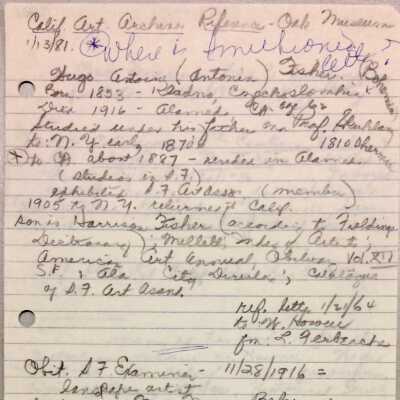 Calif Art Archives Reference - Oak Museum
1/13/81. *Where is Smithsonian letter?
Hugo Antoine (Antonin) Fisher. (Bohemia
Born 1853 - Kladno, Czechoslovakia
Died 1916 - Alameda, CA age 62
Studied under his father and Prof.
to N.Y early 1870s 1810
*to CA about 1887 - resided in Alameda
(studios in S.F.)
exhibited S.F. Art Assn (member)
1905 to N.Y. returned to Calif.
son is Harrison Fisher (according to Fieldings
Dictionary); Mallett's Index of Artists;
American Art Annual, Obituary Vol. XIV
S.F. & Ala City Directs; Catalogue
of S.F. Art Assn.
ref. letter 1/21/64
to W. Hower
fm: L. Ferbrache
Obit. S F Examiner - 11/28/1916 =
landscape artist